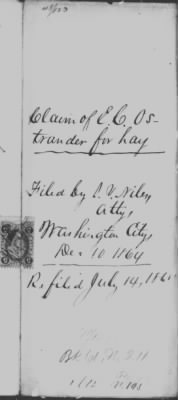 Claim of E. C. Os-
trander for hay
Filed by I. V. Niles
Atty,
Washington City,
Dec 10 1864
Refiled July 14, 186